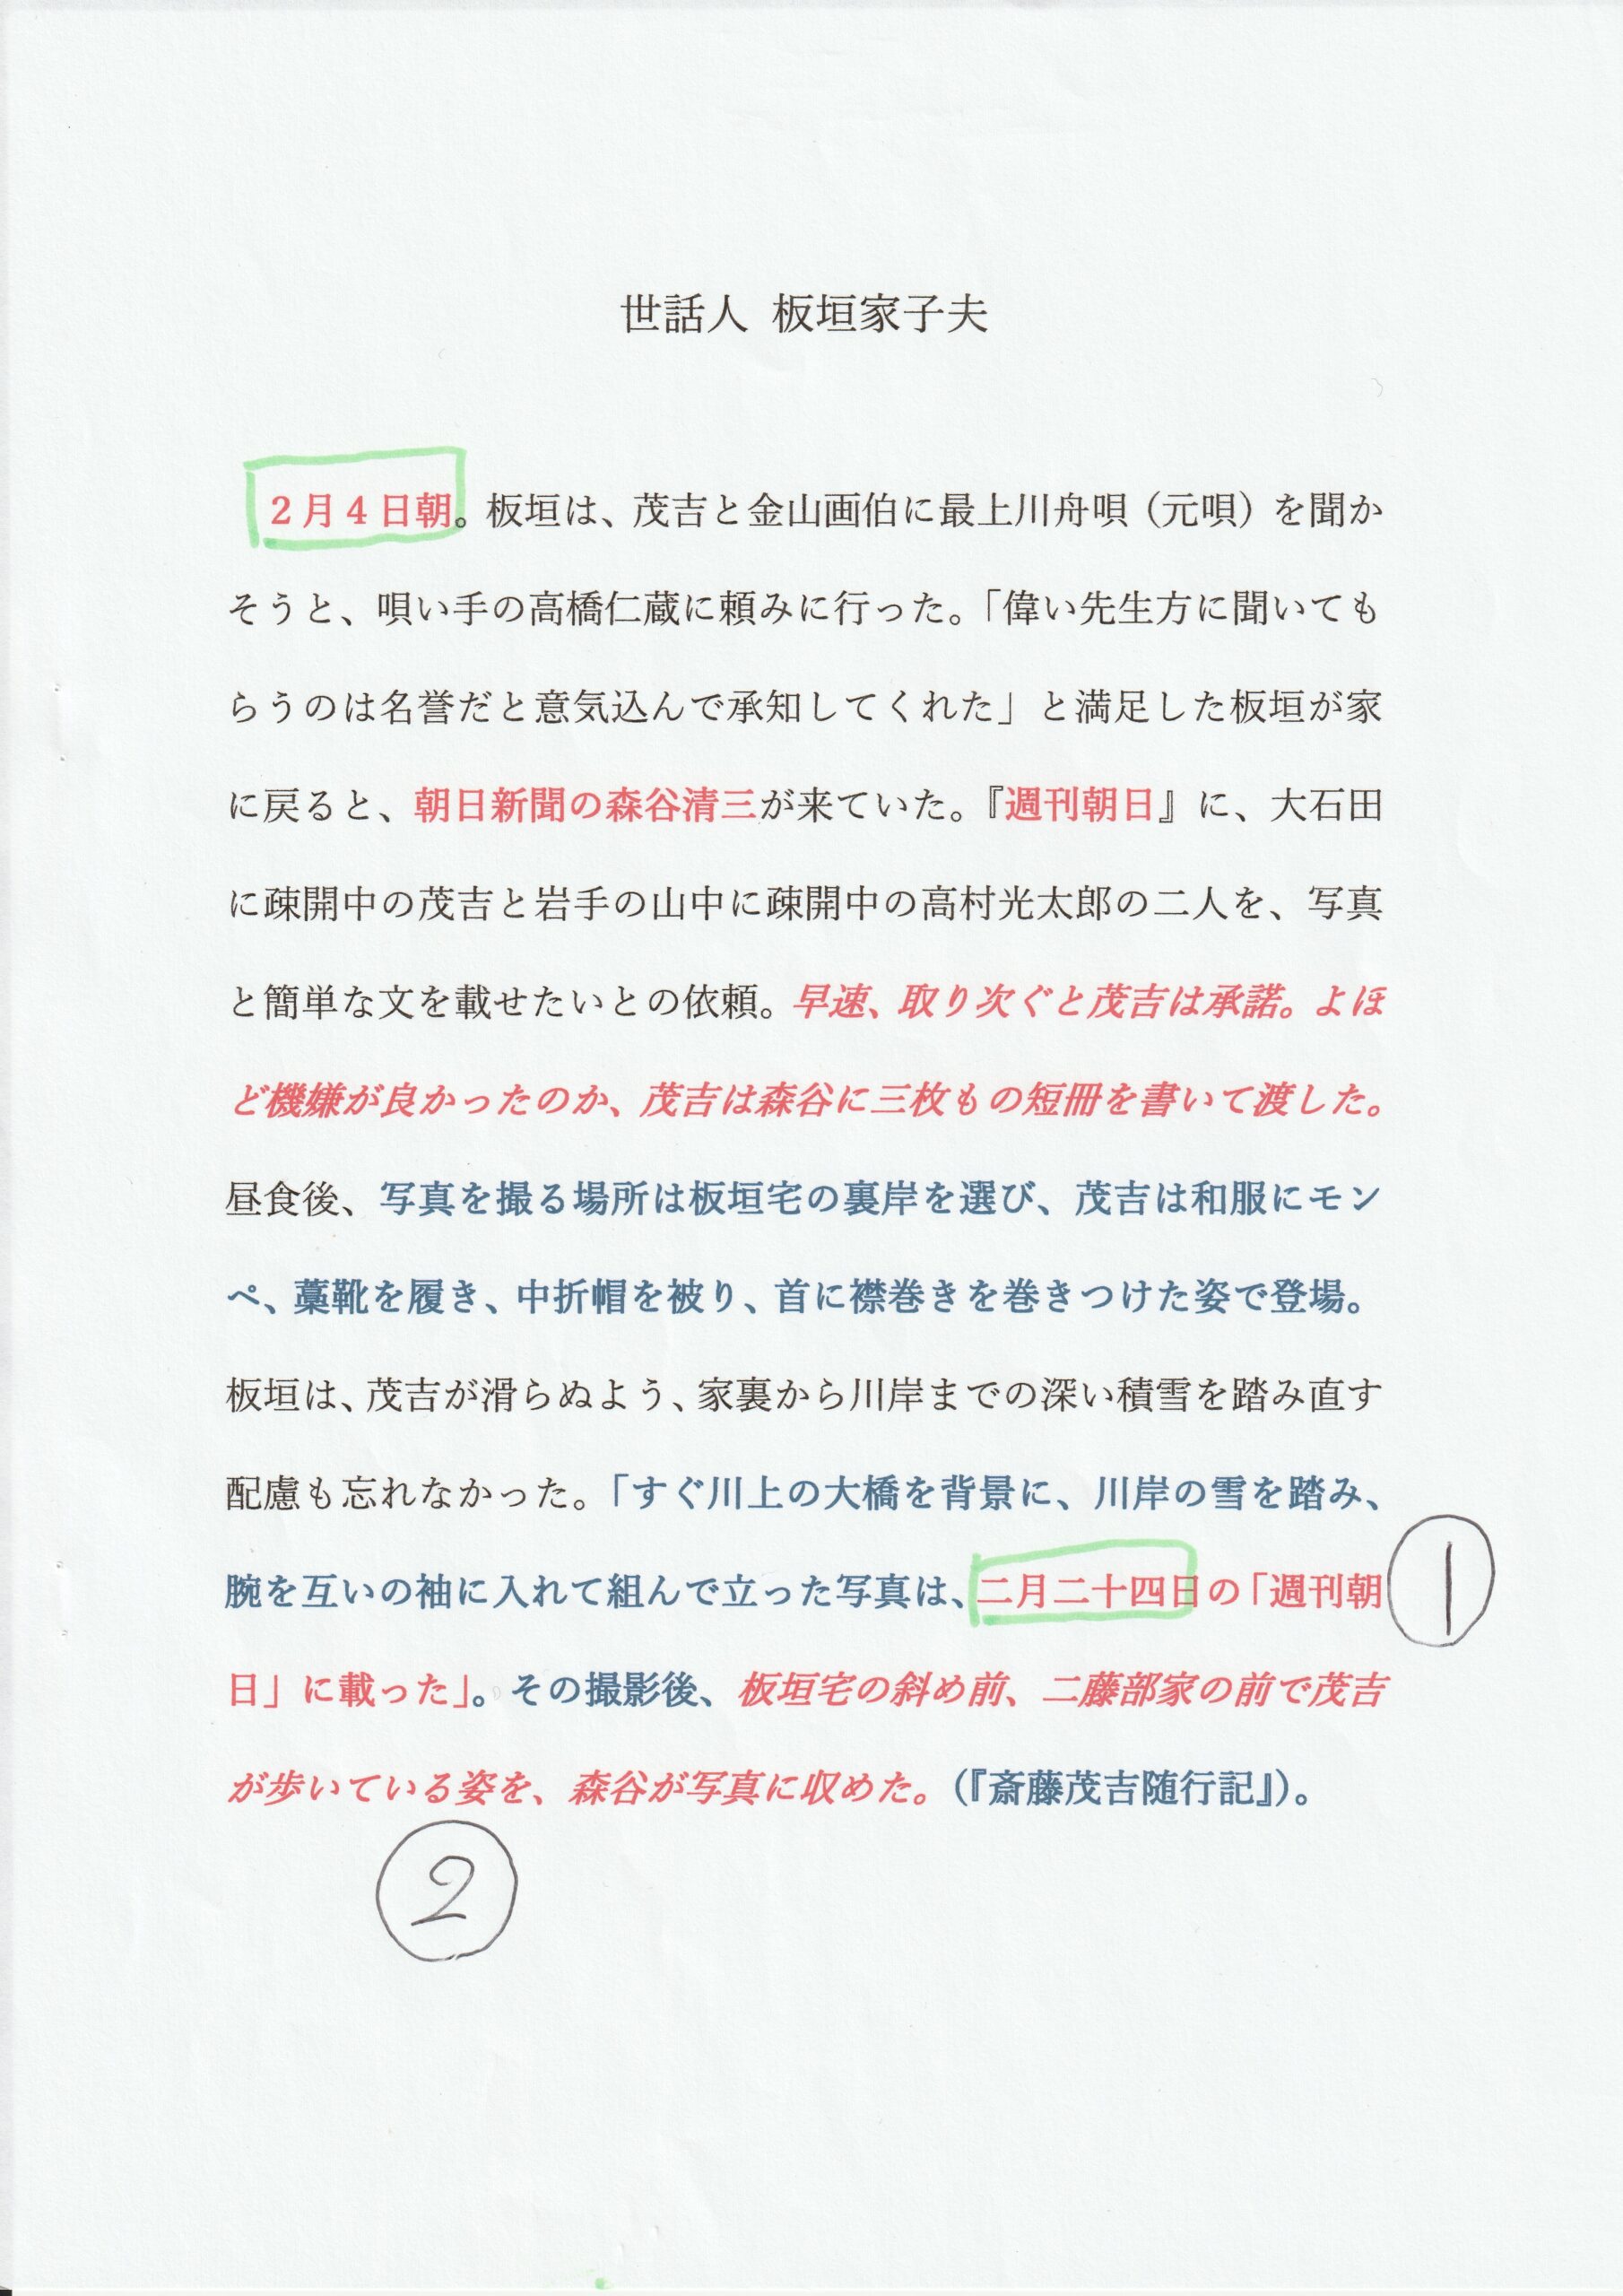 世話人 板垣家子夫
2月4日朝。板垣は、茂吉と金山画伯に最上川舟唄（元唄）を聞か
そうと、唄い手の高橋仁蔵に頼みに行った。「偉い先生方に聞いても
らうのは名誉だと意気込んで承知してくれた」と満足した板垣が家
に戻ると、朝日新聞の森谷清三が来ていた。『週刊朝日』に、大石田
に疎開中の茂吉と岩手の山中に疎開中の高村光太郎の二人を、写真
と簡単な文を載せたいとの依頼。早速、取り次ぐと茂吉は承諾。よほ
ど機嫌が良かったのか、茂吉は森谷に三枚もの短冊を書いて渡した。
昼食後、写真を撮る場所は板垣宅の裏岸を選び、茂吉は和服にモン
ペ、藁靴を履き、中折帽を被り、首に襟巻きを巻きつけた姿で登場。
板垣は、茂吉が滑らぬよう、家裏から川岸までの深い積雪を踏み直す
配慮も忘れなかった。「すぐ川上の大橋を背景に、川岸の雪を踏み、
腕を互いの袖に入れて組んで立った写真は、二月二十四日の「週刊朝
①
日」に載った」。その撮影後、板垣宅の斜め前、二藤部家の前で茂吉
が歩いている姿を、森谷が写真に収めた。（『斎藤茂吉随行記』）。
②